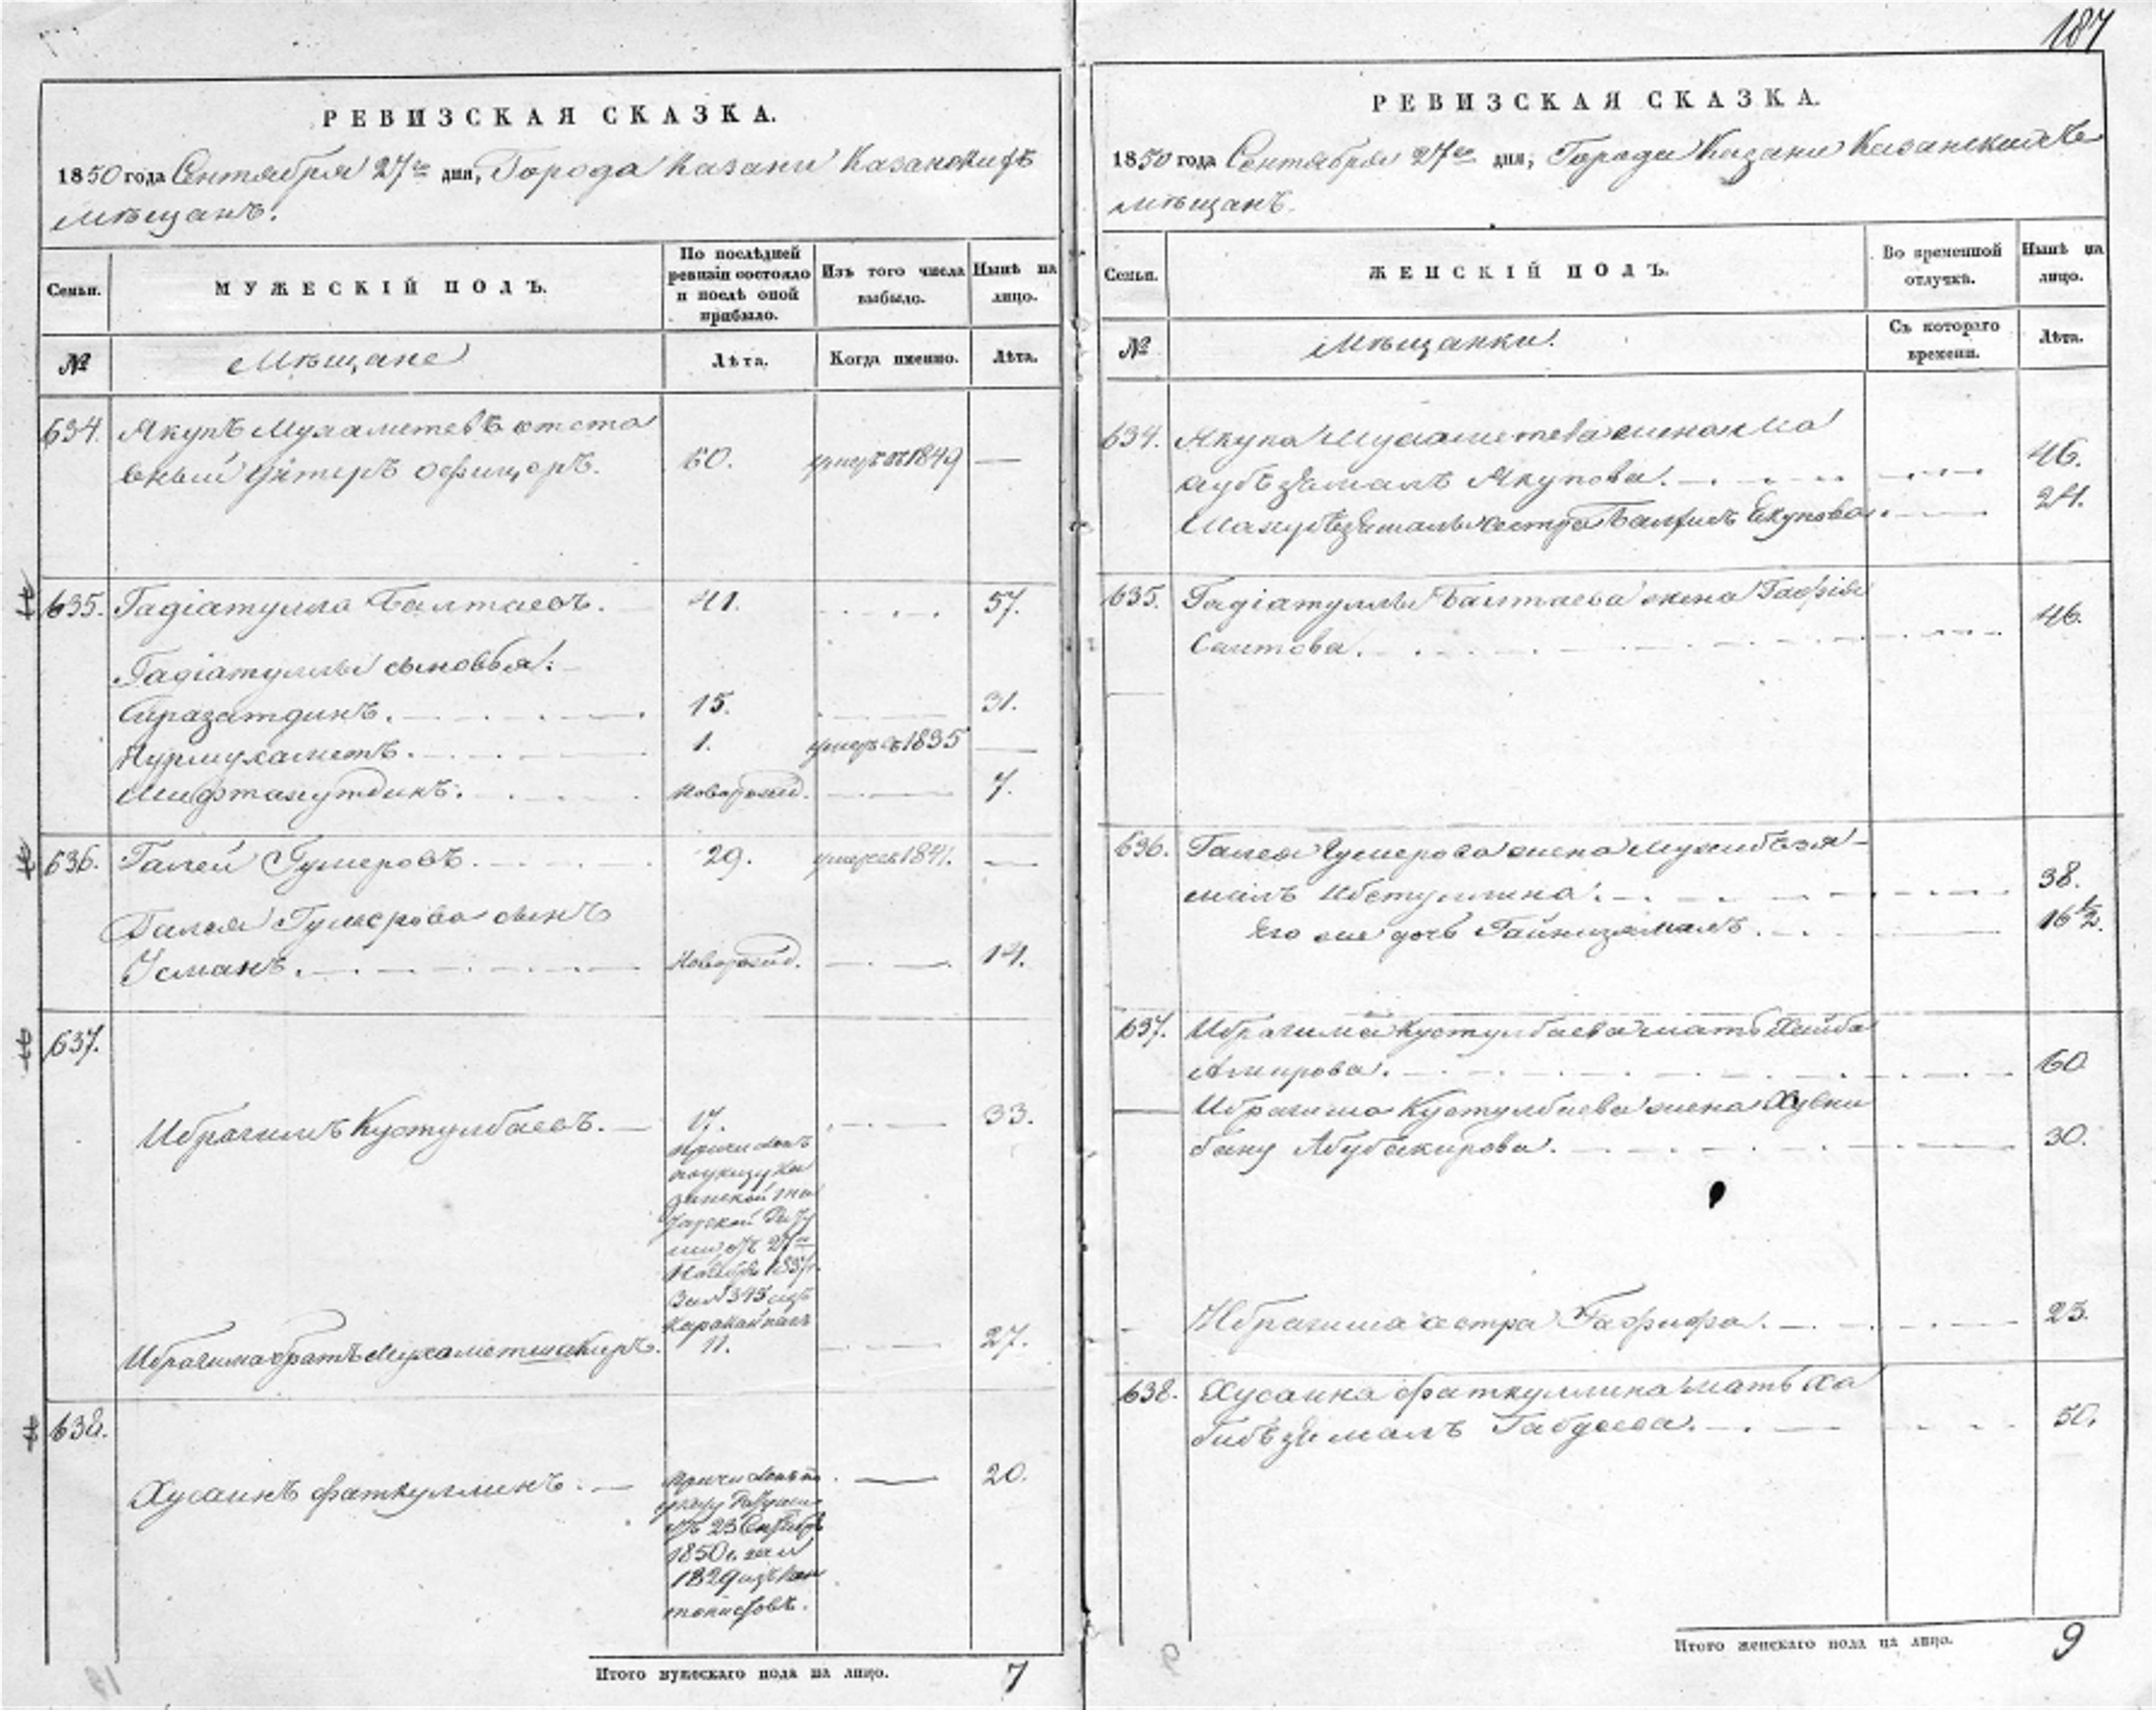 187
РЕВИЗСКАЯ СКАЗКА.
1850 года Сентября 27го дня, Города Казани Казанскихъ
мѣщанъ.
Семьи.
МУЖЕСКІЙ ПОЛЪ.
По послѣдней ревизіи состояло и послѣ оной прибыло.
Изъ того числа выбыло.
Нынѣ на лицо.
№
Мѣщане
Лѣта.
Когда именно.
Лѣта.
634. Якупъ Мухаметевъ отста
вный Унтеръ офицеръ. 60. умеръ въ 1849 —
635. Гадіатулла Балтаевъ. 41. 57.
Гадіатуллы сыновья:
Сиразатдинъ. 15. 31.
Нурмухаметъ. 1. умеръ въ 1835 —
Мифтахутдинъ. Новорожд. 7.
636. Галей Гумеровъ. 29. умеръ въ 1841. —
Галея Гумерова сынъ
Усманъ. Новорожд. 14.
637.
Ибрагимъ Кустулбаевъ. — 17. 33.
причисленъ
по указу Ка
занской
Палаты
отъ 27го
Ноября
за № 343 изъ
Ибрагима братъ Мухаметшакиръ. 11. 27.
638.
Хусаинъ Фаткуллинъ. — 20.
Причисленъ по
указу
отъ 23 Сентября
1850 г. за №
1829 изъ кан
тонистовъ.
Итого мужескаго пола на лицо. 7
РЕВИЗСКАЯ СКАЗКА.
1850 года Сентября 27го дня, Города Казани Казанскихъ
мѣщанъ.
Семьи.
ЖЕНСКІЙ ПОЛЪ.
Во временной отлучкѣ.
Нынѣ на лицо.
№
Мѣщанки.
Съ котораго времени.
Лѣта.
634. Якупа Мухаметева жена Ма
хубъзямалъ Якупова. 46.
сестра Якупова. 24.
635. Гадіатуллы Балтаева жена Гафія
Саитова. 46.
636. Галея Гумерова жена Мухибъзя-
малъ Ибетуллина. 38.
Его же дочь Гайнизямалъ. 16 1/2.
637. Ибрагима Кустулбаева мать Хаиба
Амирова. 60
Ибрагима Кустулбаева жена Хусни
бану Абубакирова. 30.
Ибрагима сестра Гафифа. 23.
638. Хусаина Фаткуллина мать Ха
бибъзямалъ Габдеева. 50.
Итого женскаго пола на лицо. 9